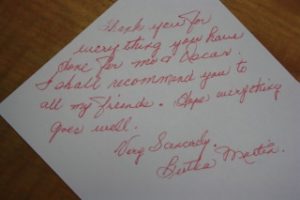 Thank you for
everything you have
done for me & Oscar.
I shall recommend you to
all my friends. Hope everything
goes well.
Very Sincerely,
Martin.